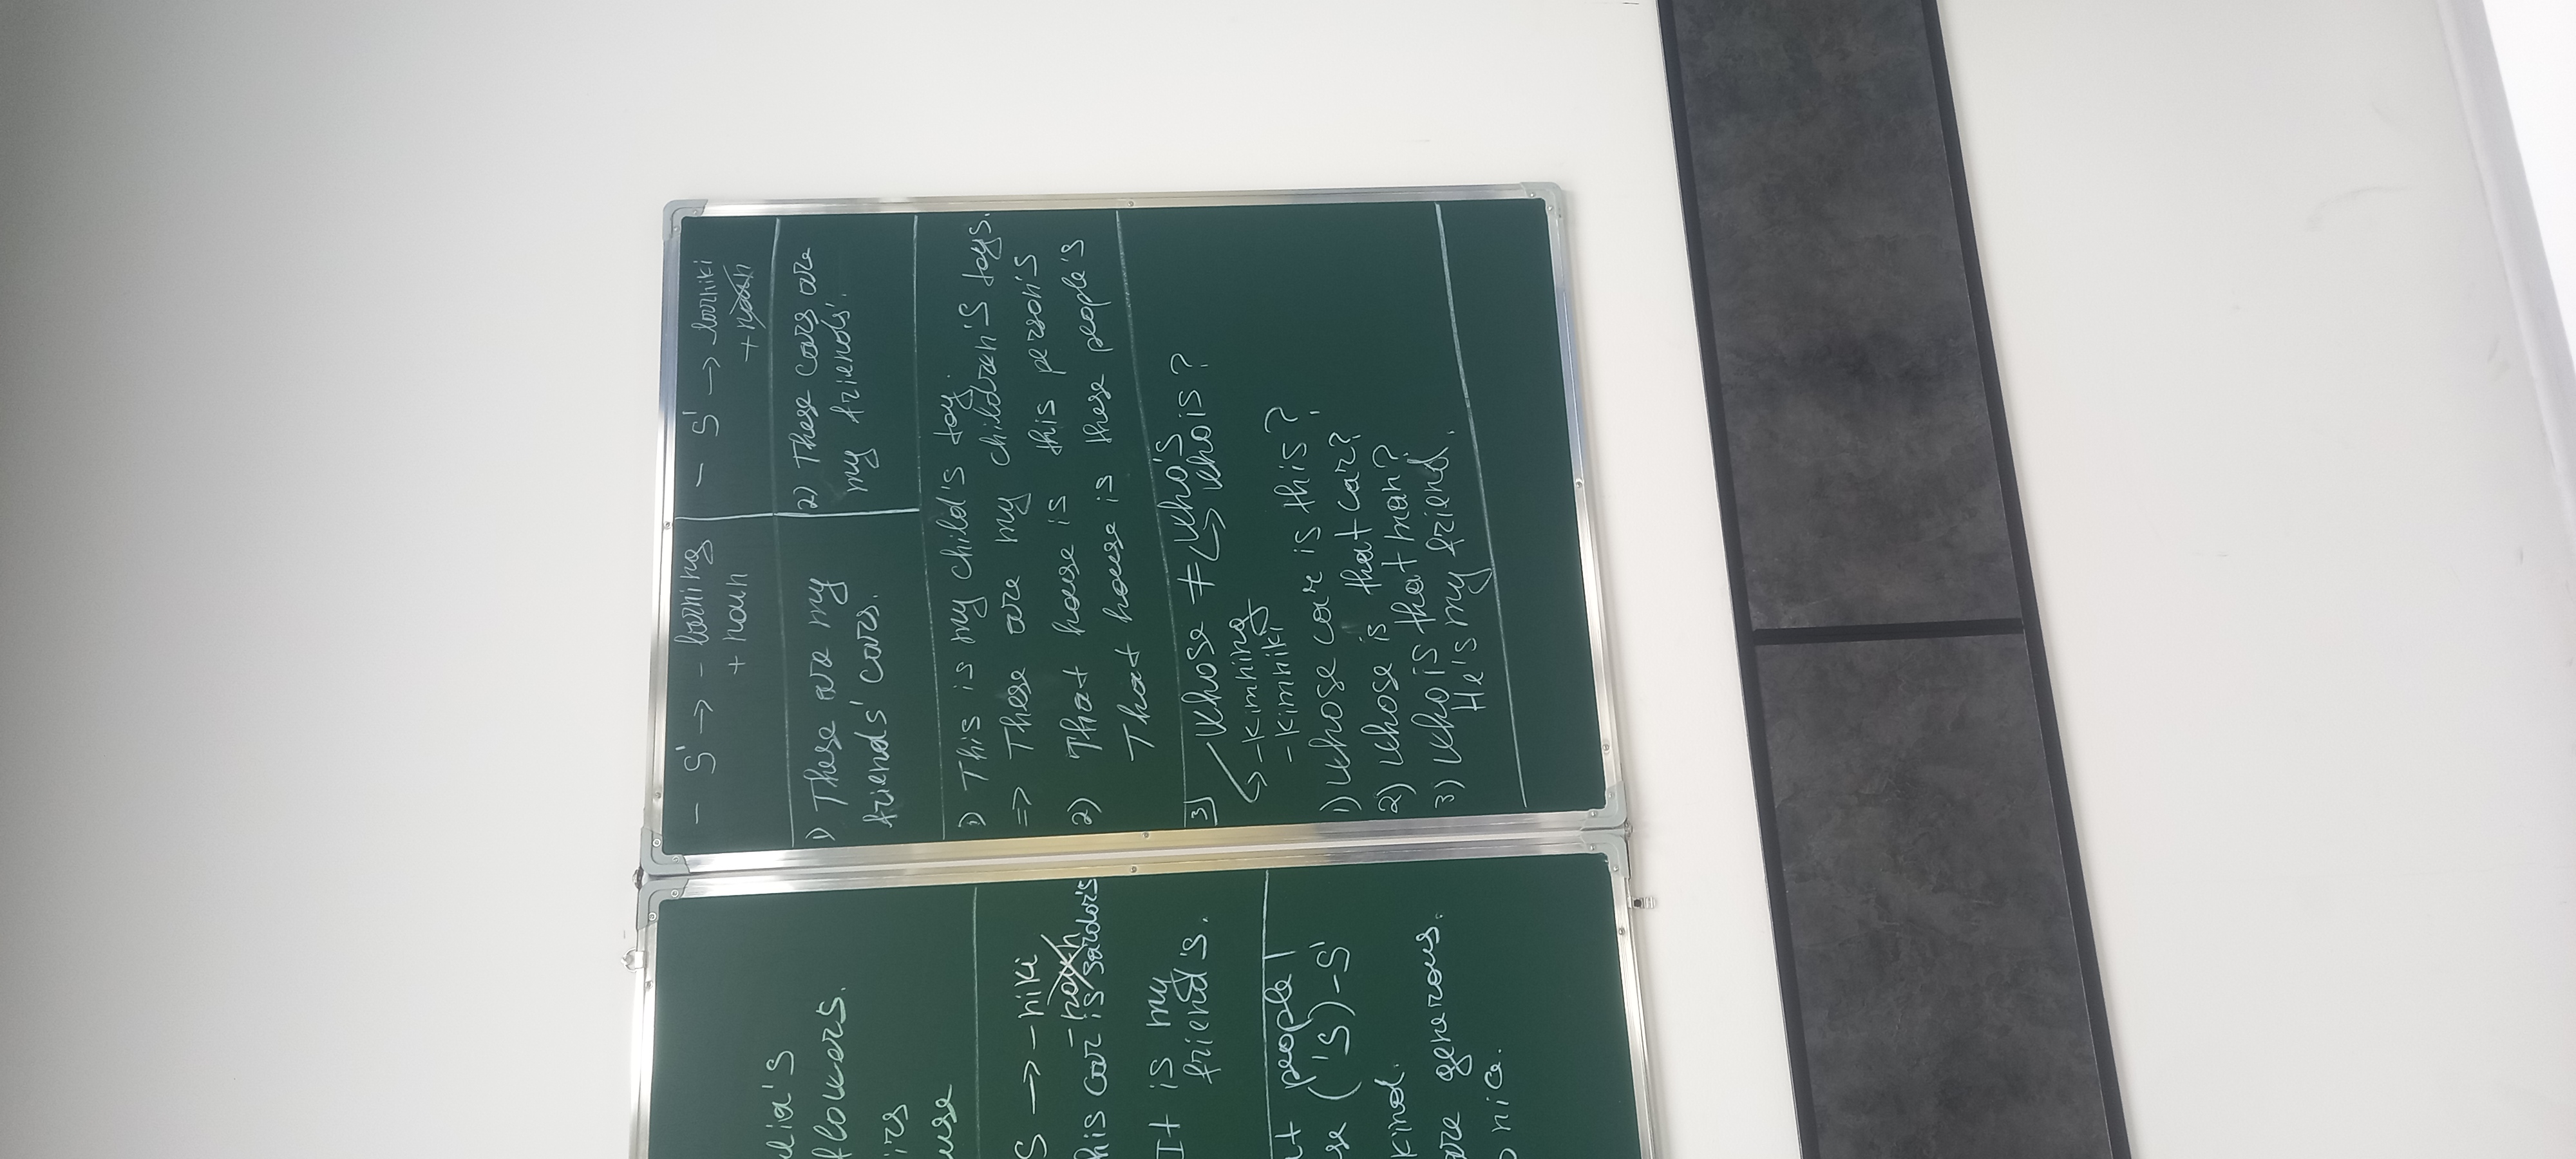 lia's
flowers.
irs
use
S → -niki
- noun
his car is Sardor's
It is my
friend's.
t people
se ('S)-S'
kind.
are generous.
nice.
- S' → - larning
+ noun
- S' → -larniki
+ noun
1) These are my
friends' cars.
2) These cars are
my friends'.
1) This is my child's toy.
=> These are my children's toys.
2) That house is this person's
That house is these people's
3) Whose ≠ who's
↳ who is?
↳ -kimning
-kimniki
1) Whose car is this?
2) Whose is that car?
3) Who is that man?
He's my friend.